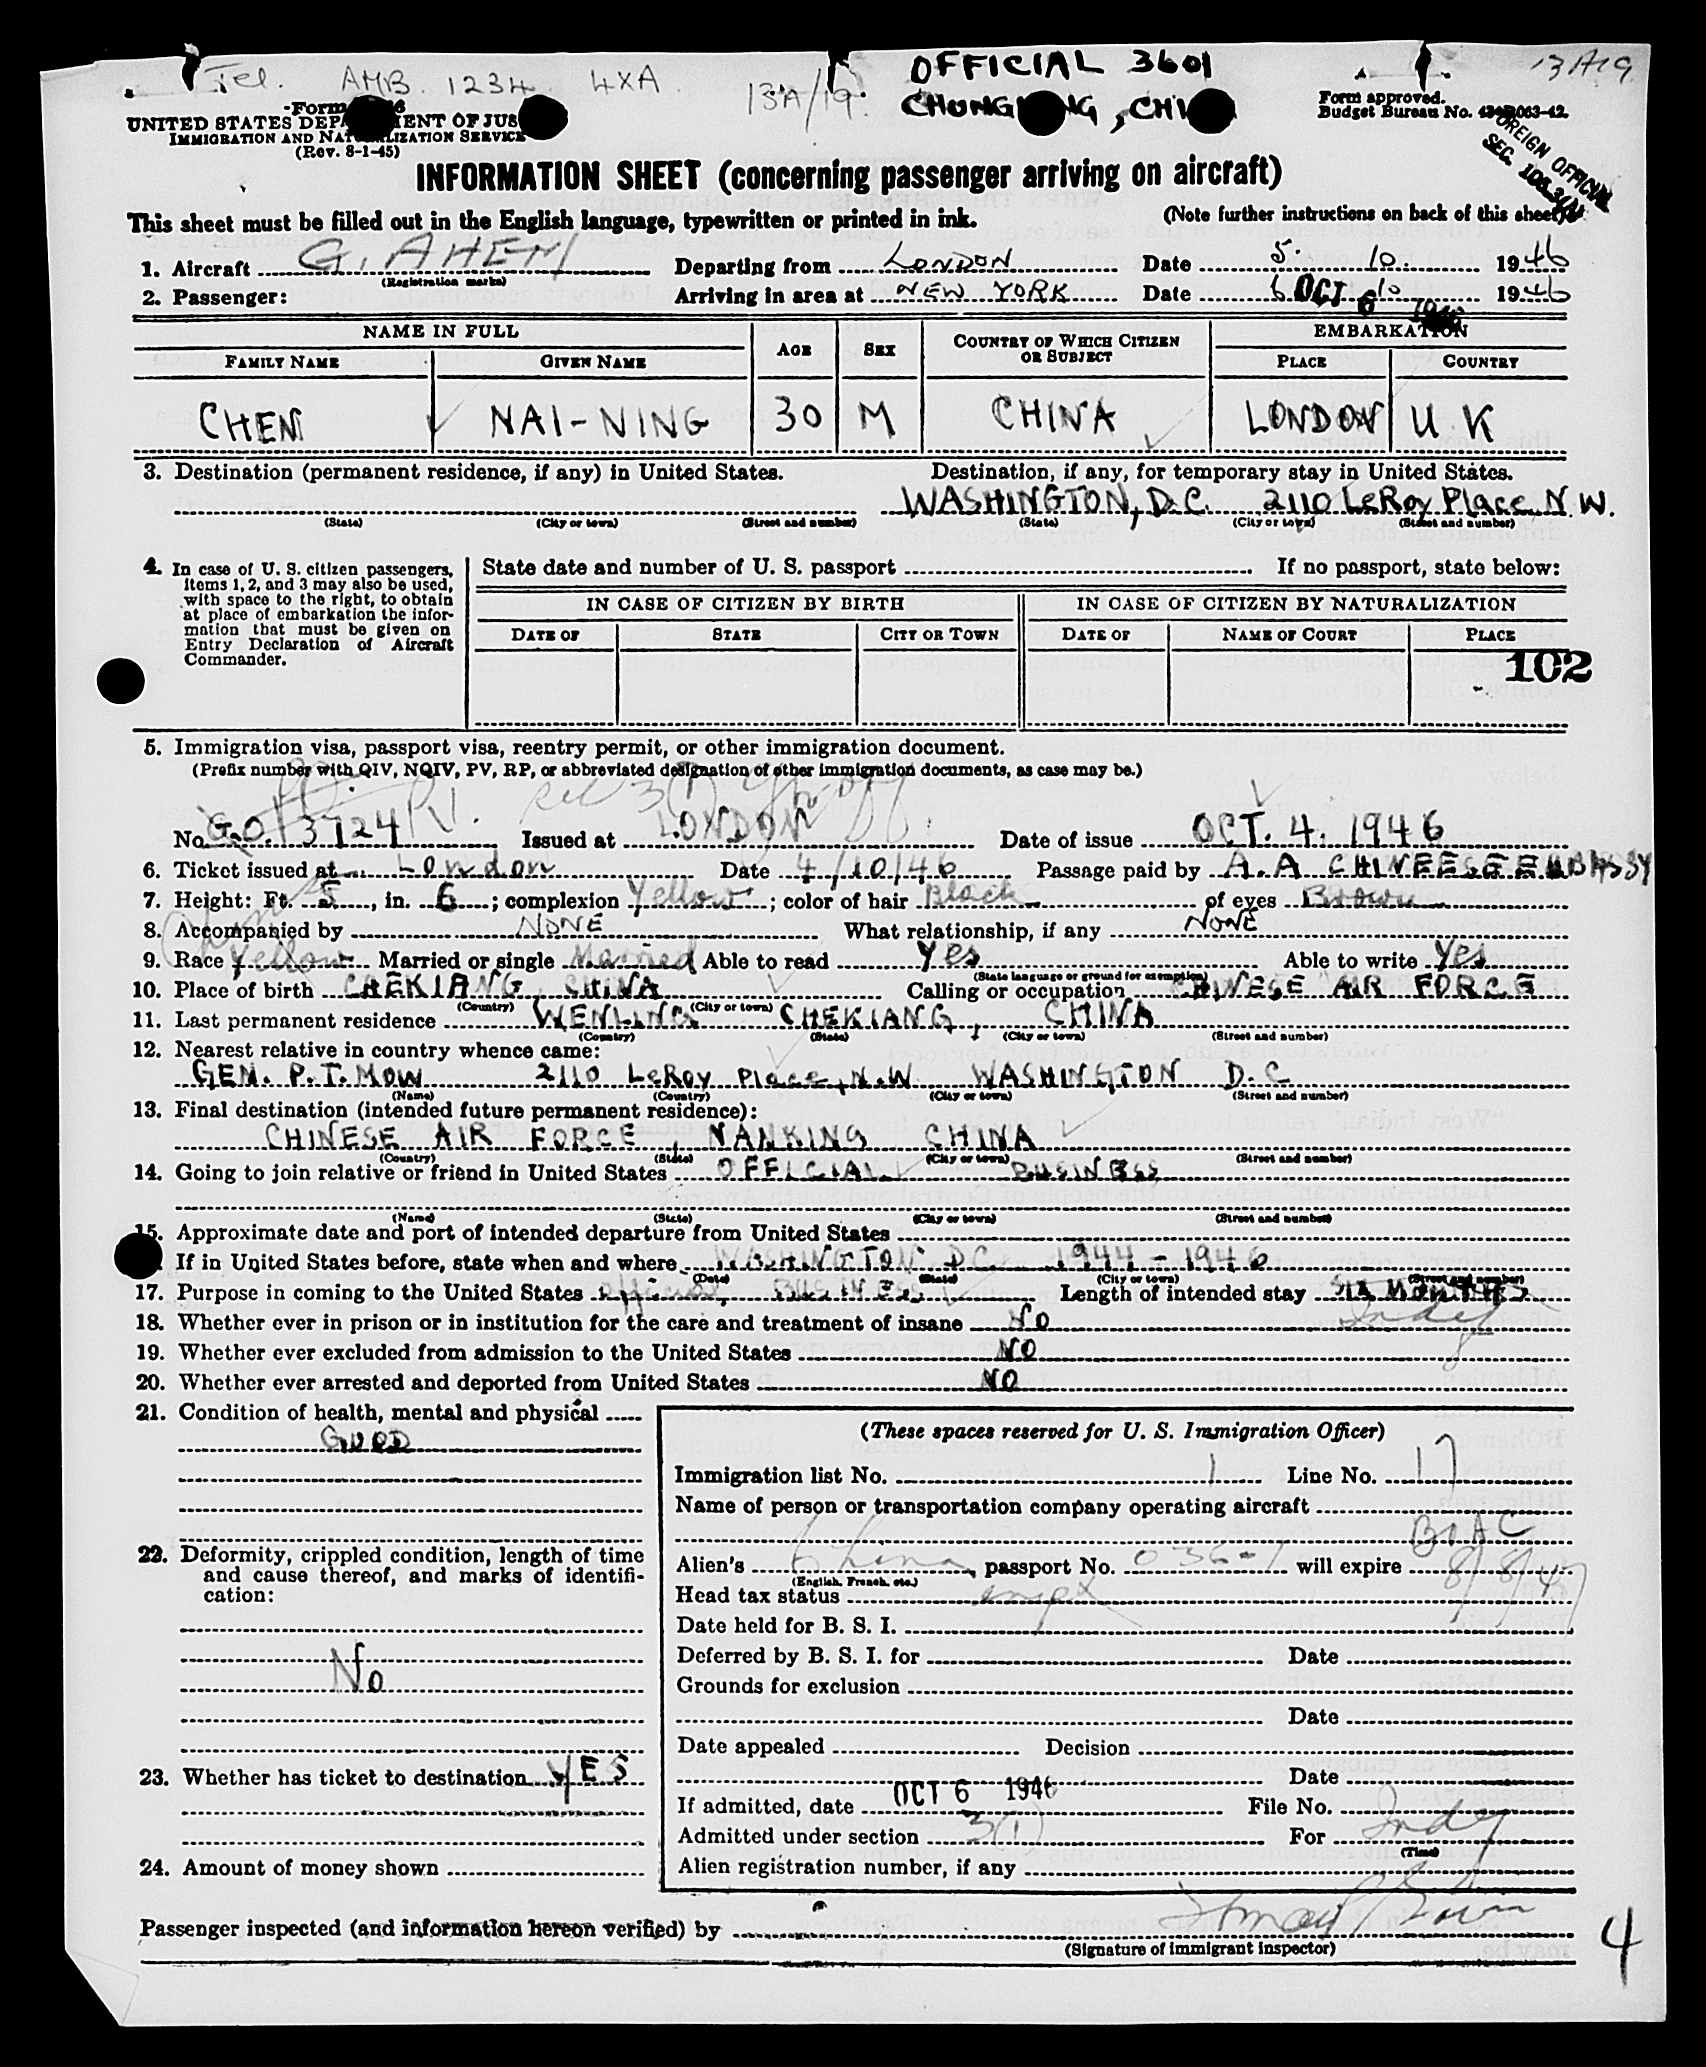 Tel. AMB. 1234 4XA. 13A/19. OFFICIAL 3601 13A19
CHUNG NG, CHI
Form
UNITED STATES DEP ENT OF JUS
IMMIGRATION AND NAT LIZATION SERVICE
(Rev. 8-1-45)
Form approved.
Budget Bureau No. 063-42.
FOREIGN OFFICIAL
SEC.
INFORMATION SHEET (concerning passenger arriving on aircraft)
This sheet must be filled out in the English language, typewritten or printed in ink. (Note further instructions on back of this sheet)
1. Aircraft G. AHEM Departing from LONDON Date 5. 10. 1946
(Registration marks)
2. Passenger: Arriving in area at NEW YORK Date 6 10 1946
OCT 6 1946
NAME IN FULL AGE SEX COUNTRY OF WHICH CITIZEN OR SUBJECT EMBARKATION
FAMILY NAME GIVEN NAME PLACE COUNTRY
CHEN NAI-NING 30 M CHINA LONDON U K
3. Destination (permanent residence, if any) in United States. Destination, if any, for temporary stay in United States.
WASHINGTON, D.C. 2110 LeRoy Place N.W.
(State) (City or town) (Street and number) (State) (City or town) (Street and number)
4. In case of U. S. citizen passengers, items 1, 2, and 3 may also be used, with space to the right, to obtain at place of embarkation the information that must be given on Entry Declaration of Aircraft Commander.
State date and number of U. S. passport If no passport, state below:
IN CASE OF CITIZEN BY BIRTH IN CASE OF CITIZEN BY NATURALIZATION
DATE OF STATE CITY OR TOWN DATE OF NAME OF COURT PLACE
102
5. Immigration visa, passport visa, reentry permit, or other immigration document.
(Prefix number with QIV, NQIV, PV, RP, or abbreviated designation of other immigration documents, as case may be.)
No. G.O. 13724 Issued at LONDON Date of issue OCT. 4. 1946
6. Ticket issued at London Date 4/10/46 Passage paid by A.A CHINEESE EMBASSY
7. Height: Ft. 5, in. 6; complexion Yellow; color of hair Black of eyes Brown
8. Accompanied by NONE What relationship, if any NONE
9. Race Yellow Married or single Married Able to read Yes Able to write Yes
(State language or ground for exemption)
10. Place of birth CHEKIANG, CHINA Calling or occupation CHINESE AIR FORCE
(Country) (City or town)
11. Last permanent residence WENLING CHEKIANG, CHINA
(Country) (State) (City or town) (Street and number)
12. Nearest relative in country whence came:
GEN. P.T. MOW 2110 LeRoy Place, N.W. WASHINGTON D.C
(Name) (Country) (City or town) (Street and number)
13. Final destination (intended future permanent residence):
CHINESE AIR FORCE, NANKING CHINA
(Country) (State) (City or town) (Street and number)
14. Going to join relative or friend in United States OFFICIAL BUSINESS
(Name) (State) (City or town) (Street and number)
15. Approximate date and port of intended departure from United States
If in United States before, state when and where WASHINGTON DC 1944 - 1946
(Date) (State) (City or town) (Street and number)
17. Purpose in coming to the United States official BUSINESS Length of intended stay SIX MONTHS
Indef
18. Whether ever in prison or in institution for the care and treatment of insane NO
19. Whether ever excluded from admission to the United States NO
20. Whether ever arrested and deported from United States NO
21. Condition of health, mental and physical
GOOD
22. Deformity, crippled condition, length of time and cause thereof, and marks of identification:
No
23. Whether has ticket to destination YES
24. Amount of money shown
(These spaces reserved for U. S. Immigration Officer)
Immigration list No. 1 Line No. 17
Name of person or transportation company operating aircraft
BOAC
Alien's China passport No. 036-1 will expire 8/8/47
(English, French, etc.)
Head tax status
Date held for B. S. I.
Deferred by B. S. I. for Date
Grounds for exclusion
Date
Date appealed Decision
Date
If admitted, date OCT 6 1946 File No.
Admitted under section 3(1) For Indef
(Time)
Alien registration number, if any
Passenger inspected (and information hereon verified) by
(Signature of immigrant inspector)
4